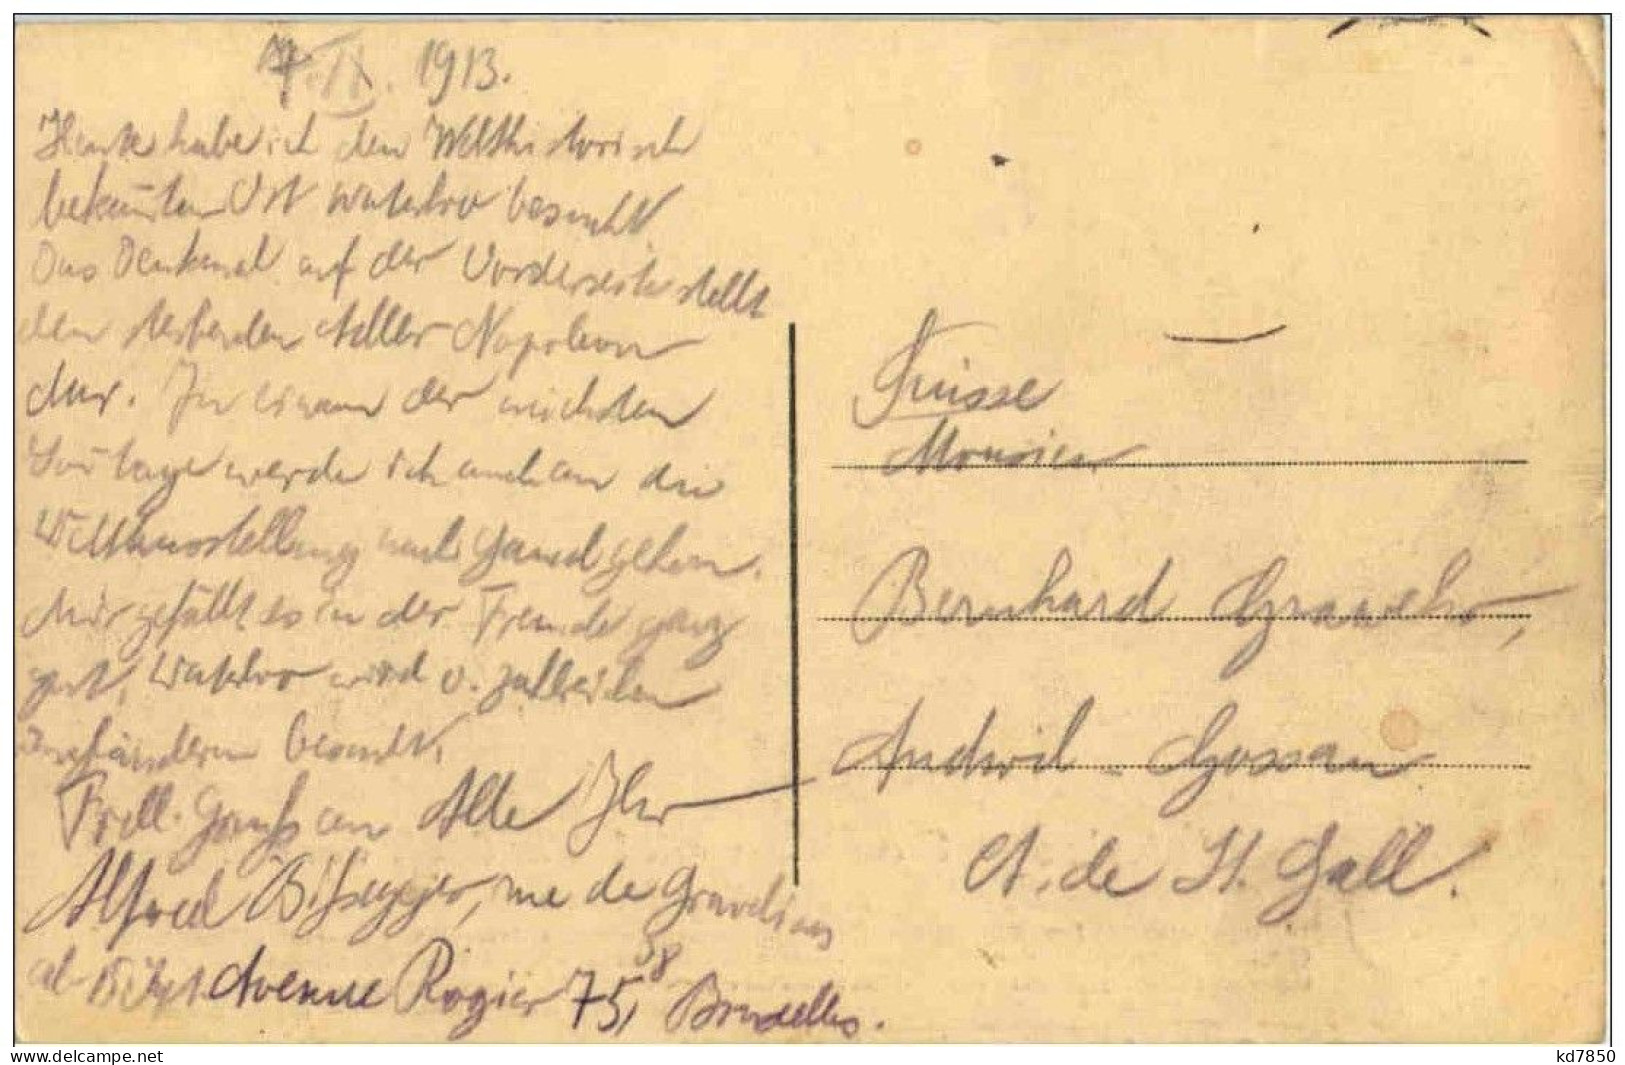 7. IX. 1913.
Heute habe ich den Welthistorisch
bekannten Ort Waterloo besucht
Das Denkmal auf der Vorderseite stellt
den sterbenden Adler Napoleon
dar. In einem der nächsten
Sontage werde ich auch an die
Weltausstellung nach Gand gehen.
Mir gefällt es in der Fremde ganz
gut, Waterloo wird v. zalreichen
besucht.
Frdl. Gruß an Alle Ihr
Alfred rue de
ab 15 Sept. Avenue Rogier 75, Bruxelles.
38
Suisse
Monsieur
Bernhard
Andwil - Gossau
Ct. de St. Gall.
delcampe.net
kd7850